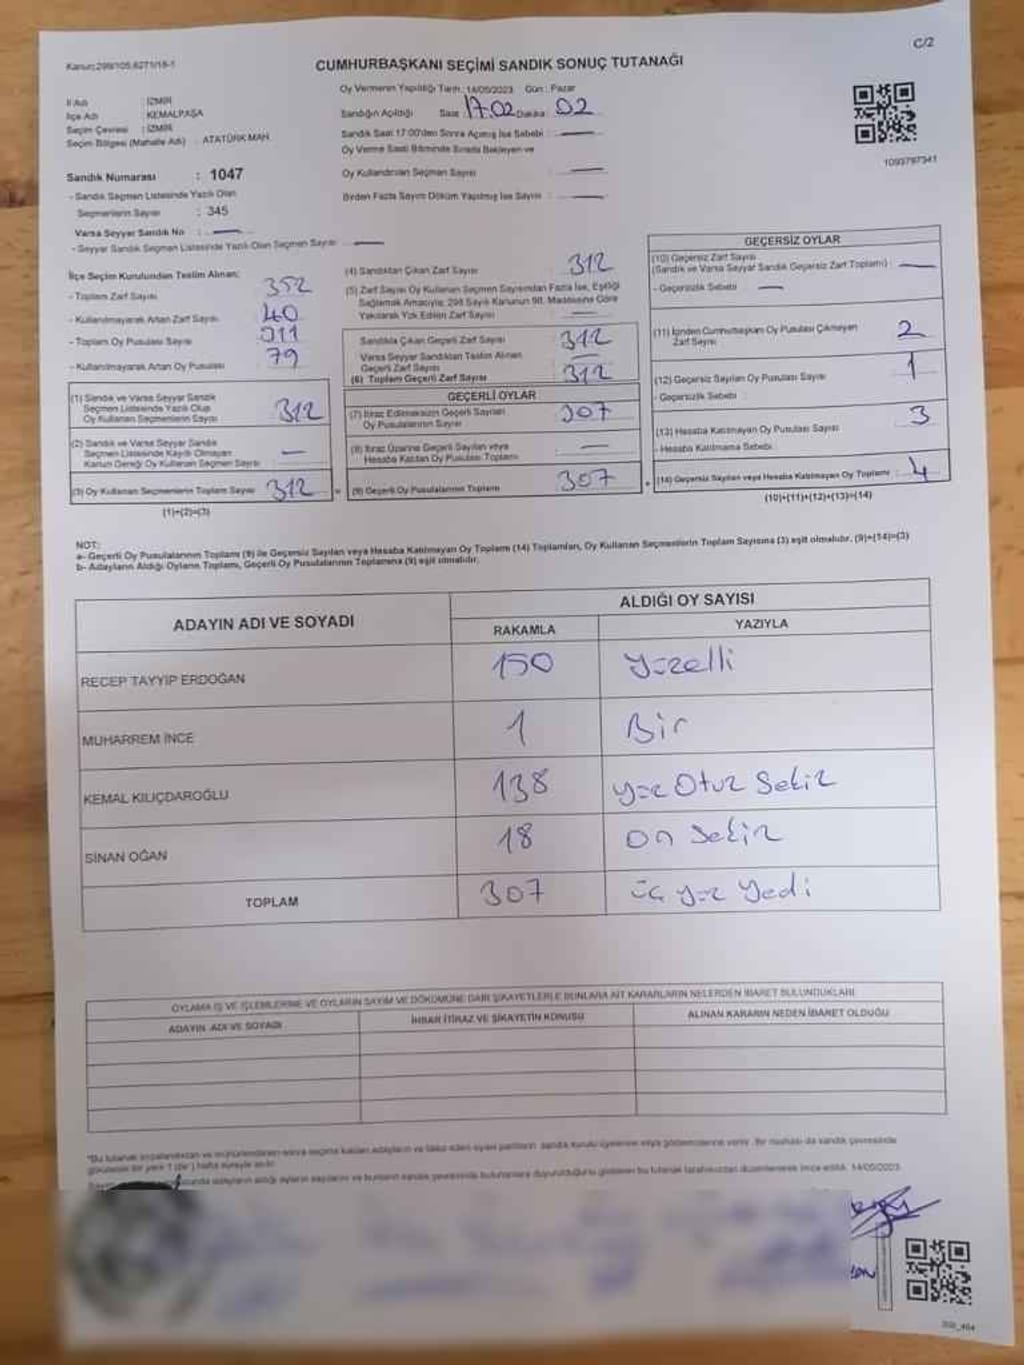 C/2
Kanun:298/105,6271/18-1
CUMHURBAŞKANI SEÇİMİ SANDIK SONUÇ TUTANAĞI
Oy Vermenin Yapıldığı Tarih : 14/05/2023 Gün : Pazar
İl Adı : İZMİR
İlçe Adı : KEMALPAŞA
Seçim Çevresi : İZMİR
Seçim Bölgesi (Mahalle Adı) : ATATÜRK MAH.
Sandığın Açıldığı Saat : 17.02 Dakika : 02
Sandık Saat 17:00'den Sonra Açılmış İse Sebebi : —
Oy Verme Saati Bitiminde Sırada Bekleyen ve
Oy Kullandırılan Seçmen Sayısı : —
Birden Fazla Sayım Döküm Yapılmış İse Sayısı : —
1093797341
Sandık Numarası : 1047
- Sandık Seçmen Listesinde Yazılı Olan
Seçmenlerin Sayısı : 345
Varsa Seyyar Sandık No : —
- Seyyar Sandık Seçmen Listesinde Yazılı Olan Seçmen Sayısı : —
İlçe Seçim Kurulundan Teslim Alınan:
- Toplam Zarf Sayısı 352
- Kullanılmayarak Artan Zarf Sayısı 40
- Toplam Oy Pusulası Sayısı
- Kullanılmayarak Artan Oy Pusulası 79
(1) Sandık ve Varsa Seyyar Sandık
Seçmen Listesinde Yazılı Olup
Oy Kullanan Seçmenlerin Sayısı 312
(2) Sandık ve Varsa Seyyar Sandık
Seçmen Listesinde Kayıtlı Olmayan
Kanun Gereği Oy Kullanan Seçmen Sayısı —
(3) Oy Kullanan Seçmenlerin Toplam Sayısı 312
(1)+(2)=(3)
(4) Sandıktan Çıkan Zarf Sayısı 312
(5) Zarf Sayısı Oy Kullanan Seçmen Sayısından Fazla İse, Eşitliği
Sağlamak Amacıyla, 298 Sayılı Kanunun 98. Maddesine Göre
Yakılarak Yok Edilen Zarf Sayısı —
Sandıkta Çıkan Geçerli Zarf Sayısı 312
Varsa Seyyar Sandıktan Teslim Alınan
Geçerli Zarf Sayısı —
(6) Toplam Geçerli Zarf Sayısı 312
GEÇERLİ OYLAR
(7) İtiraz Edilmeksizin Geçerli Sayılan
Oy Pusulalarının Sayısı 307
(8) İtiraz Üzerine Geçerli Sayılan veya
Hesaba Katılan Oy Pusulası Toplamı —
(9) Geçerli Oy Pusulalarının Toplamı 307
GEÇERSİZ OYLAR
(10) Geçersiz Zarf Sayısı
(Sandık ve Varsa Seyyar Sandık Geçersiz Zarf Toplamı) : —
- Geçersizlik Sebebi : —
(11) İçinden Cumhurbaşkanı Oy Pusulası Çıkmayan
Zarf Sayısı 2
(12) Geçersiz Sayılan Oy Pusulası Sayısı 1
- Geçersizlik Sebebi :
(13) Hesaba Katılmayan Oy Pusulası Sayısı 3
- Hesaba Katılmama Sebebi :
(14) Geçersiz Sayılan veya Hesaba Katılmayan Oy Toplamı : 4
(10)+(11)+(12)+(13)=(14)
NOT:
a- Geçerli Oy Pusulalarının Toplamı (9) ile Geçersiz Sayılan veya Hesaba Katılmayan Oy Toplamı (14) Toplamları, Oy Kullanan Seçmenlerin Toplam Sayısına (3) eşit olmalıdır. (9)+(14)=(3)
b- Adayların Aldığı Oyların Toplamı, Geçerli Oy Pusulalarının Toplamına (9) eşit olmalıdır.
ADAYIN ADI VE SOYADI ALDIĞI OY SAYISI
RAKAMLA YAZIYLA
RECEP TAYYİP ERDOĞAN 150 Yüzelli
MUHARREM İNCE 1 Bir
KEMAL KILIÇDAROĞLU 138 yüz Otuz Sekiz
SİNAN OĞAN 18 on Sekiz
TOPLAM 307 üç yüz Yedi
OYLAMA İŞ VE İŞLEMLERİNE VE OYLARIN SAYIM VE DÖKÜMÜNE DAİR ŞİKAYETLERLE BUNLARA AİT KARARLARIN NELERDEN İBARET BULUNDUKLARI
ADAYIN ADI VE SOYADI İHBAR İTİRAZ VE ŞİKAYETİN KONUSU ALINAN KARARIN NEDEN İBARET OLDUĞU